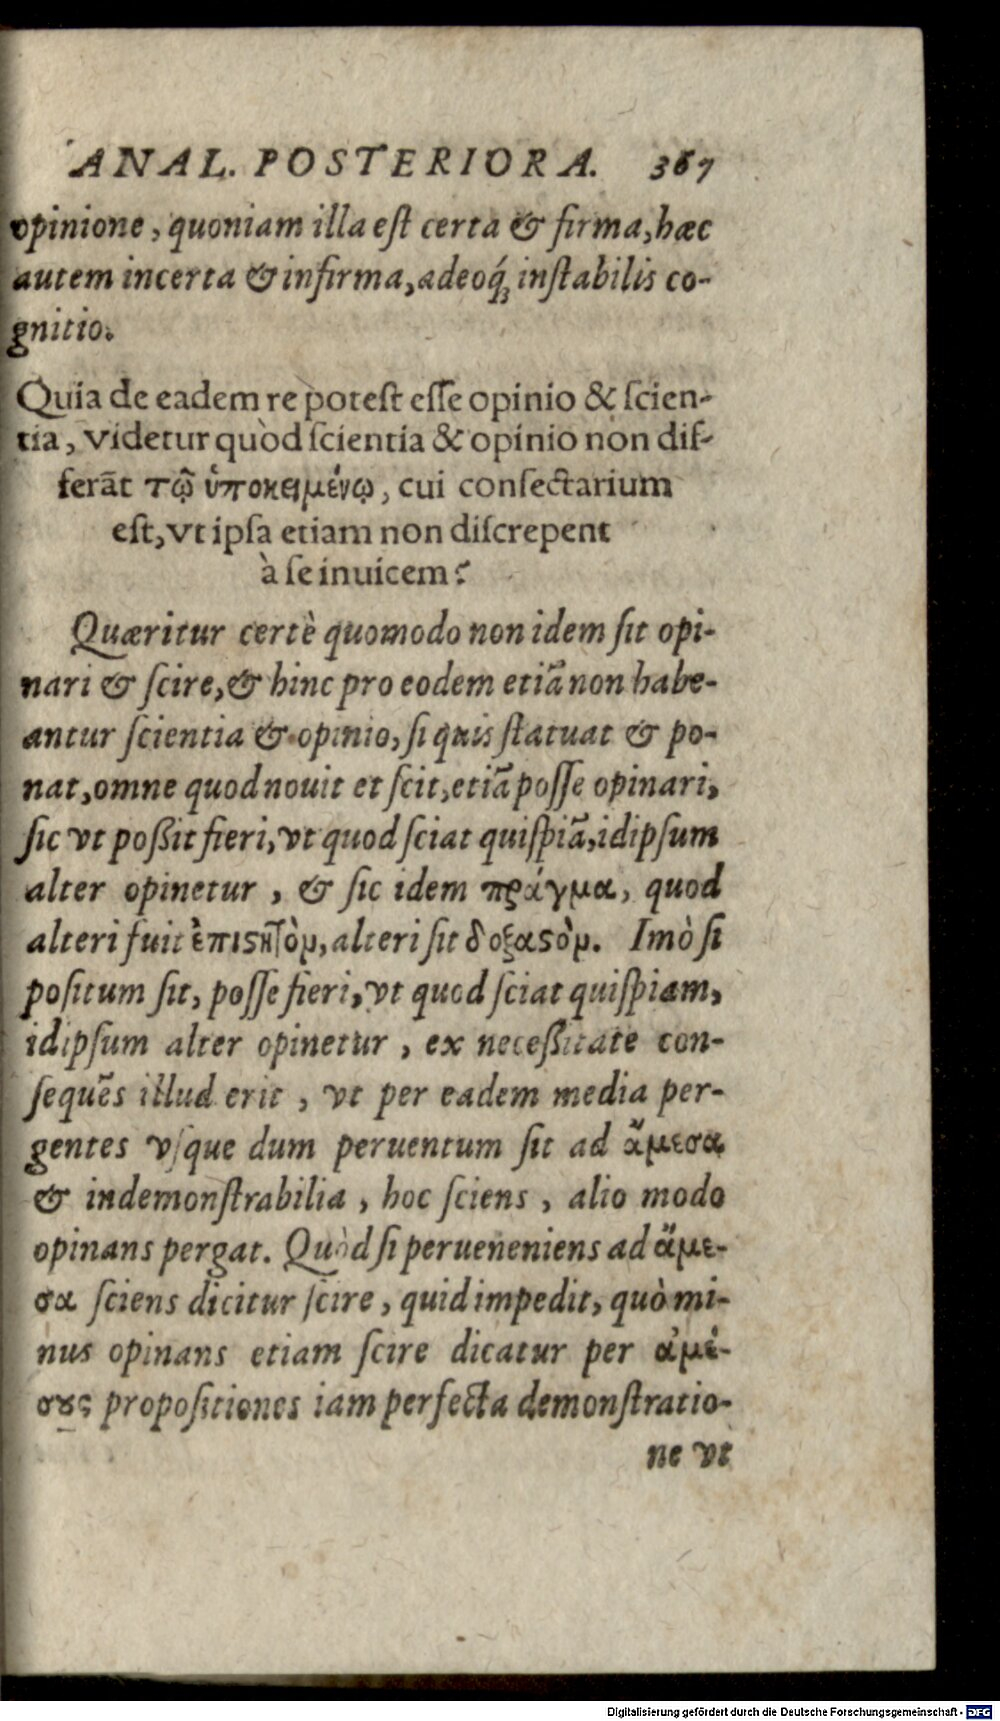 ANAL. POSTERIORA. 367
opinione, quoniam illa est certa & firma, hæc
autem incerta & infirma, adeoq́; instabilis co-
gnitio.
Quia de eadem re potest esse opinio & scien-
tia, videtur quòd scientia & opinio non dif-
ferāt τῷ ὑποκειμένῳ, cui consectarium
est, vt ipsa etiam non discrepent
à se inuicem?
Quæritur certè quomodo non idem sit opi-
nari & scire, & hinc pro eodem etiā non habe-
antur scientia & opinio, si quis statuat & po-
nat, omne quod nouit et scit, etiā posse opinari,
sic vt poßit fieri, vt quod sciat quispiā, idipsum
alter opinetur, & sic idem πράγμα, quod
alteri fuit ἐπιςητὸμ, alteri sit δοξαςὸμ. Imò si
positum sit, posse fieri, vt quod sciat quispiam,
idipsum alter opinetur, ex neceßitate con-
sequēs illud erit, vt per eadem media per-
gentes vsque dum peruentum sit ad ἄμεσα
& indemonstrabilia, hoc sciens, alio modo
opinans pergat. Quòd si perueneniens ad ἄμε-
σα sciens dicitur scire, quid impedit, quò mi-
nus opinans etiam scire dicatur per ἀμέ-
σȣς propositiones iam perfecta demonstratio-
ne vt
Digitalisierung gefördert durch die Deutsche Forschungsgemeinschaft - DFG